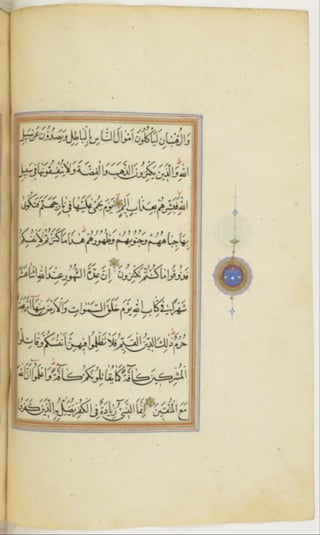 وَالرُّهْبَانِ لَيَأْكُلُونَ أَمْوَالَ النَّاسِ بِالْبَاطِلِ وَيَصُدُّونَ عَنْ سَبِيلِ
اللهِ وَالَّذِينَ يَكْنِزُونَ الذَّهَبَ وَالْفِضَّةَ وَلَا يُنْفِقُونَهَا فِي سَبِيلِ
اللهِ فَبَشِّرْهُمْ بِعَذَابٍ أَلِيمٍ يَوْمَ يُحْمَى عَلَيْهَا فِي نَارِ جَهَنَّمَ فَتُكْوَى
بِهَا جِبَاهُهُمْ وَجُنُوبُهُمْ وَظُهُورُهُمْ هَذَا مَا كَنَزْتُمْ لِأَنْفُسِكُمْ
فَذُوقُوا مَا كُنْتُمْ تَكْنِزُونَ إِنَّ عِدَّةَ الشُّهُورِ عِنْدَ اللهِ اثْنَا عَشَرَ
شَهْرًا فِي كِتَابِ اللهِ يَوْمَ خَلَقَ السَّمَوَاتِ وَالْأَرْضَ مِنْهَا أَرْبَعَةٌ
حُرُمٌ ذَلِكَ الدِّينُ الْقَيِّمُ فَلَا تَظْلِمُوا فِيهِنَّ أَنْفُسَكُمْ وَقَاتِلُوا
الْمُشْرِكِينَ كَافَّةً كَمَا يُقَاتِلُونَكُمْ كَافَّةً وَاعْلَمُوا أَنَّ اللهَ
مَعَ الْمُتَّقِينَ إِنَّمَا النَّسِيءُ زِيَادَةٌ فِي الْكُفْرِ يُضَلُّ بِهِ الَّذِينَ كَفَرُوا